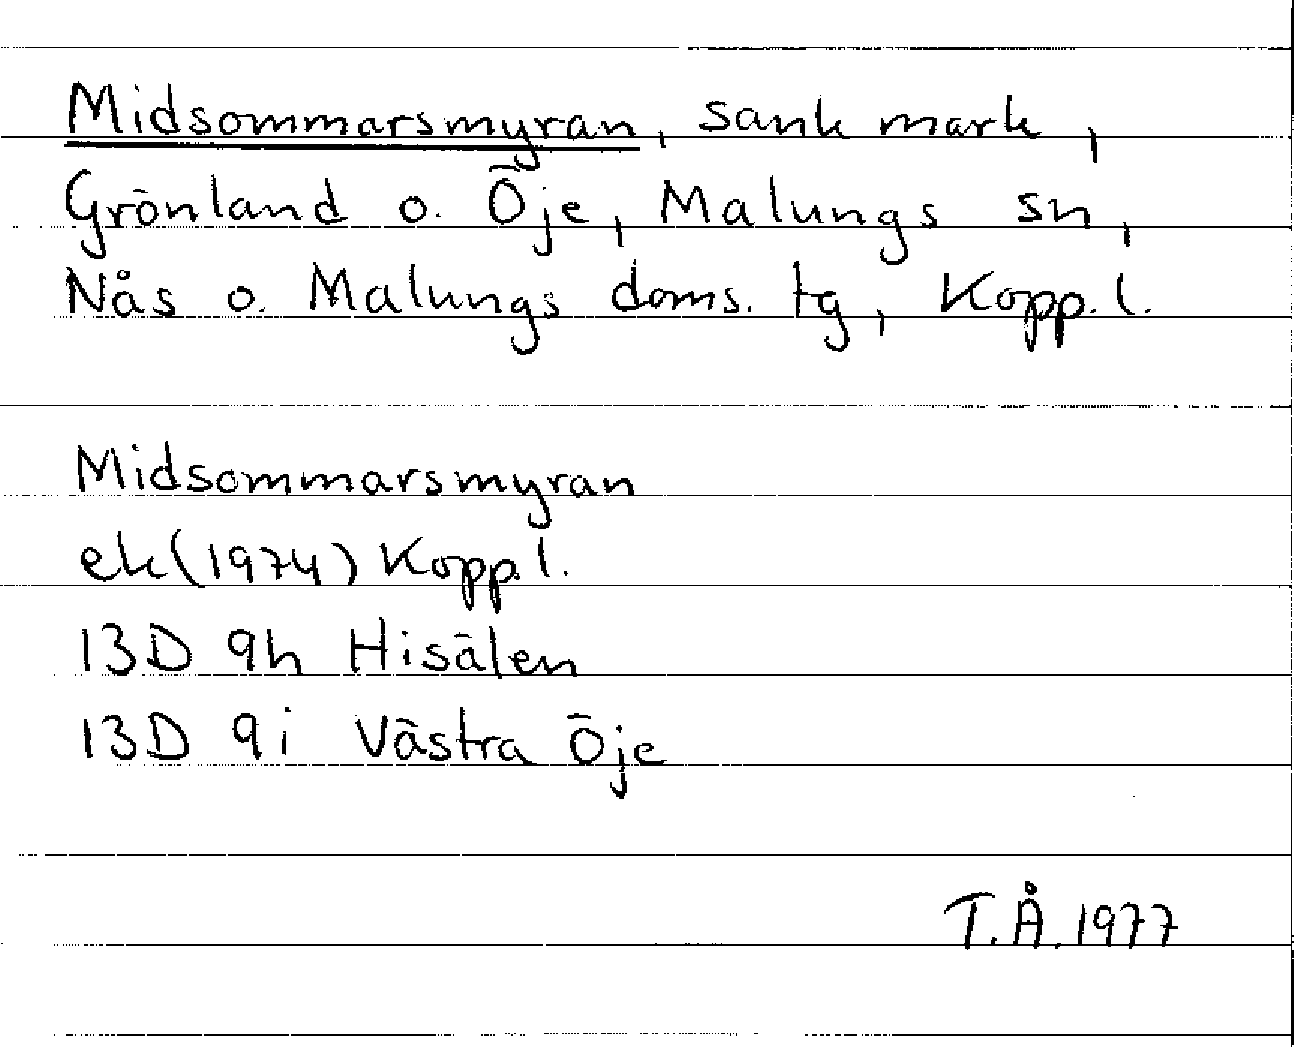 Midsommarsmyran, sank mark,
Grönland o. Öje, Malungs sn,
Nås o. Malungs doms. tg, Kopp. l.
Midsommarsmyran
ek (1974) Kopp. l.
13D 9h Hisälen
13D 9i Västra Öje
T.Å. 1977